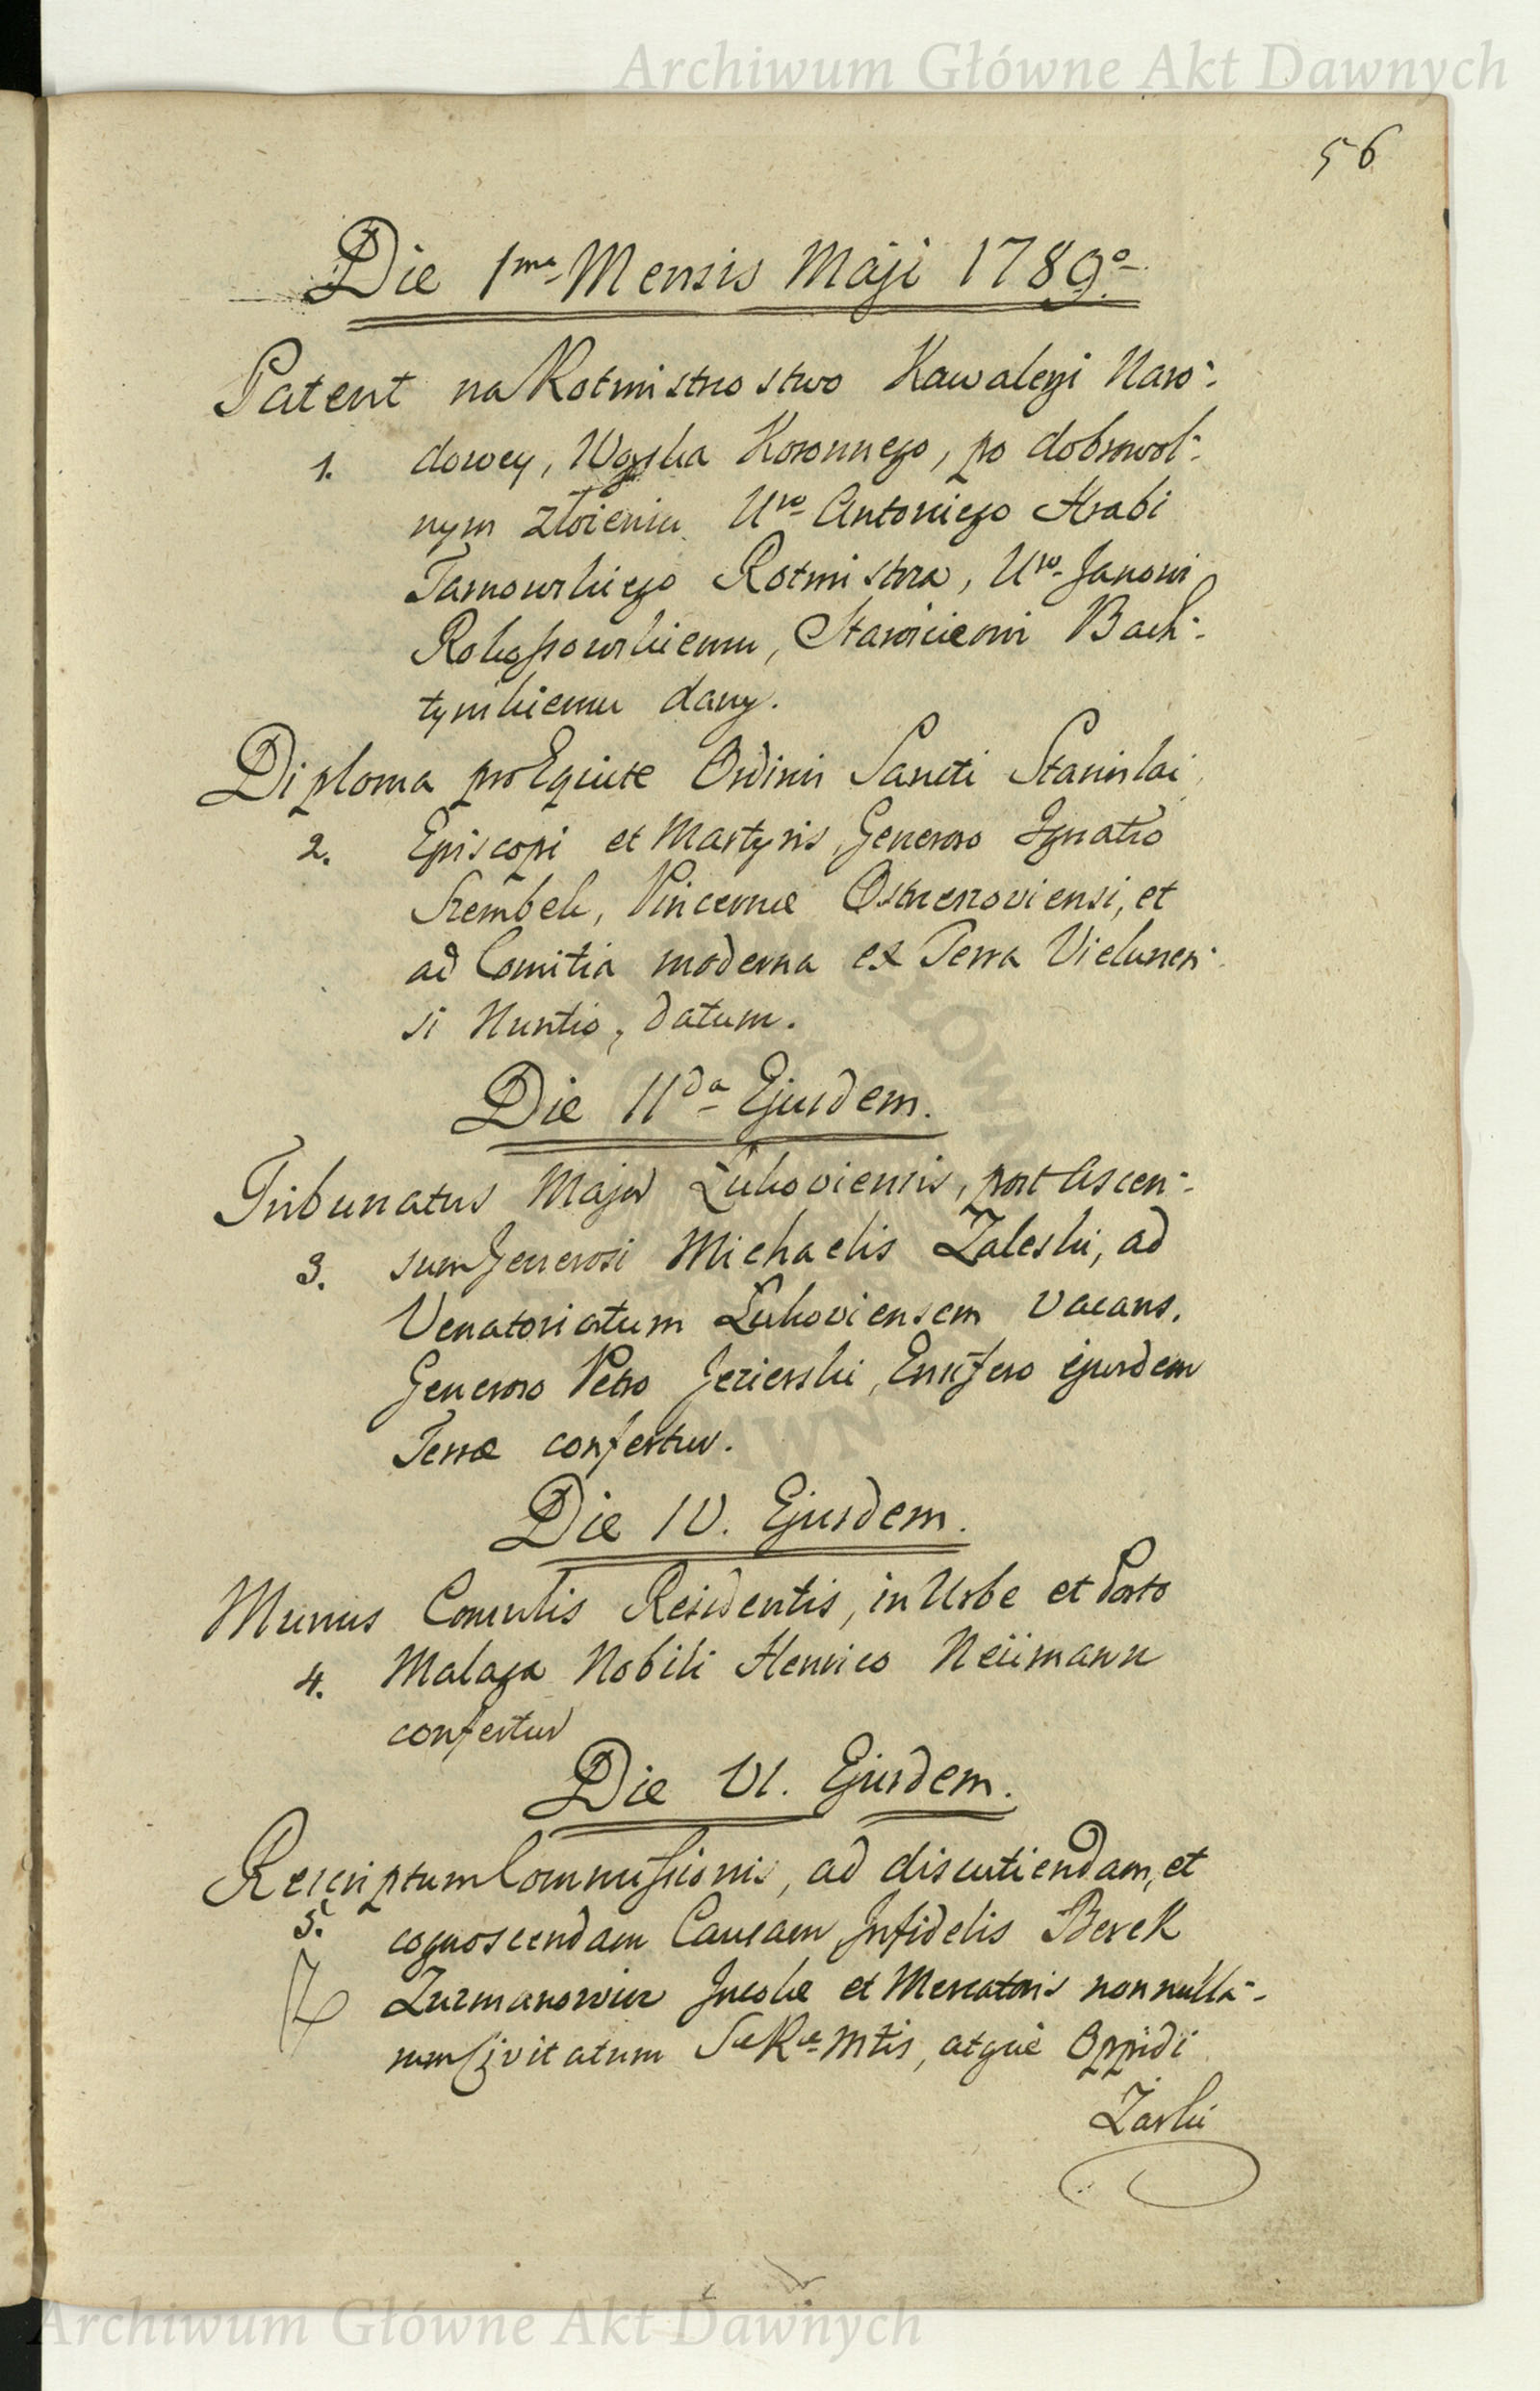 Archiwum Główne Akt Dawnych
56
Die 1ma Mensis Maji 1789o
Patent na Rotmistrzostwo Kawaleryi Naro-
1. dowey, Woyska Koronnego, po dobrowol-
nym złożeniu Uro Antoniego Hrabi
Tarnowskiego Rotmistrza, Uro Janowi
Rokossowskiemu, Staroscicowi Bach-
tynskiemu dany.
Diploma pro Equite Ordinis Sancti Stanislai
2. Episcopi et Martyris, Generoso Ignatio
Szembek, Pincernæ Ostrzeszoviensi, et
ad Comitia moderna ex Terra Vielunen-
si Nuntio, datum.
Die IIda Ejusdem.
Tribunatus Major Łukoviensis, post Ascen-
3. sum Generosi Michaelis Zaleski, ad
Venatoriatum Łukoviensem vacans.
Generoso Petro Jezierski, Ensifero ejusdem
Terræ confertur.
Die IV. Ejusdem.
Munus Consulis Residentis, in Urbe et Porto
4. Malaga Nobili Henrico Neümann
confertur
Die VI. Ejusdem.
Rescriptum Commissionis, ad discutiendam, et
5. cognoscendam Causam Infidelis Berek
Zurmanowicz Incolæ et Mercatoris nonnulla-
rum Civitatum Sæ Ræ Mtis, atque Oppidi
Żarki
Archiwum Główne Akt Dawnych